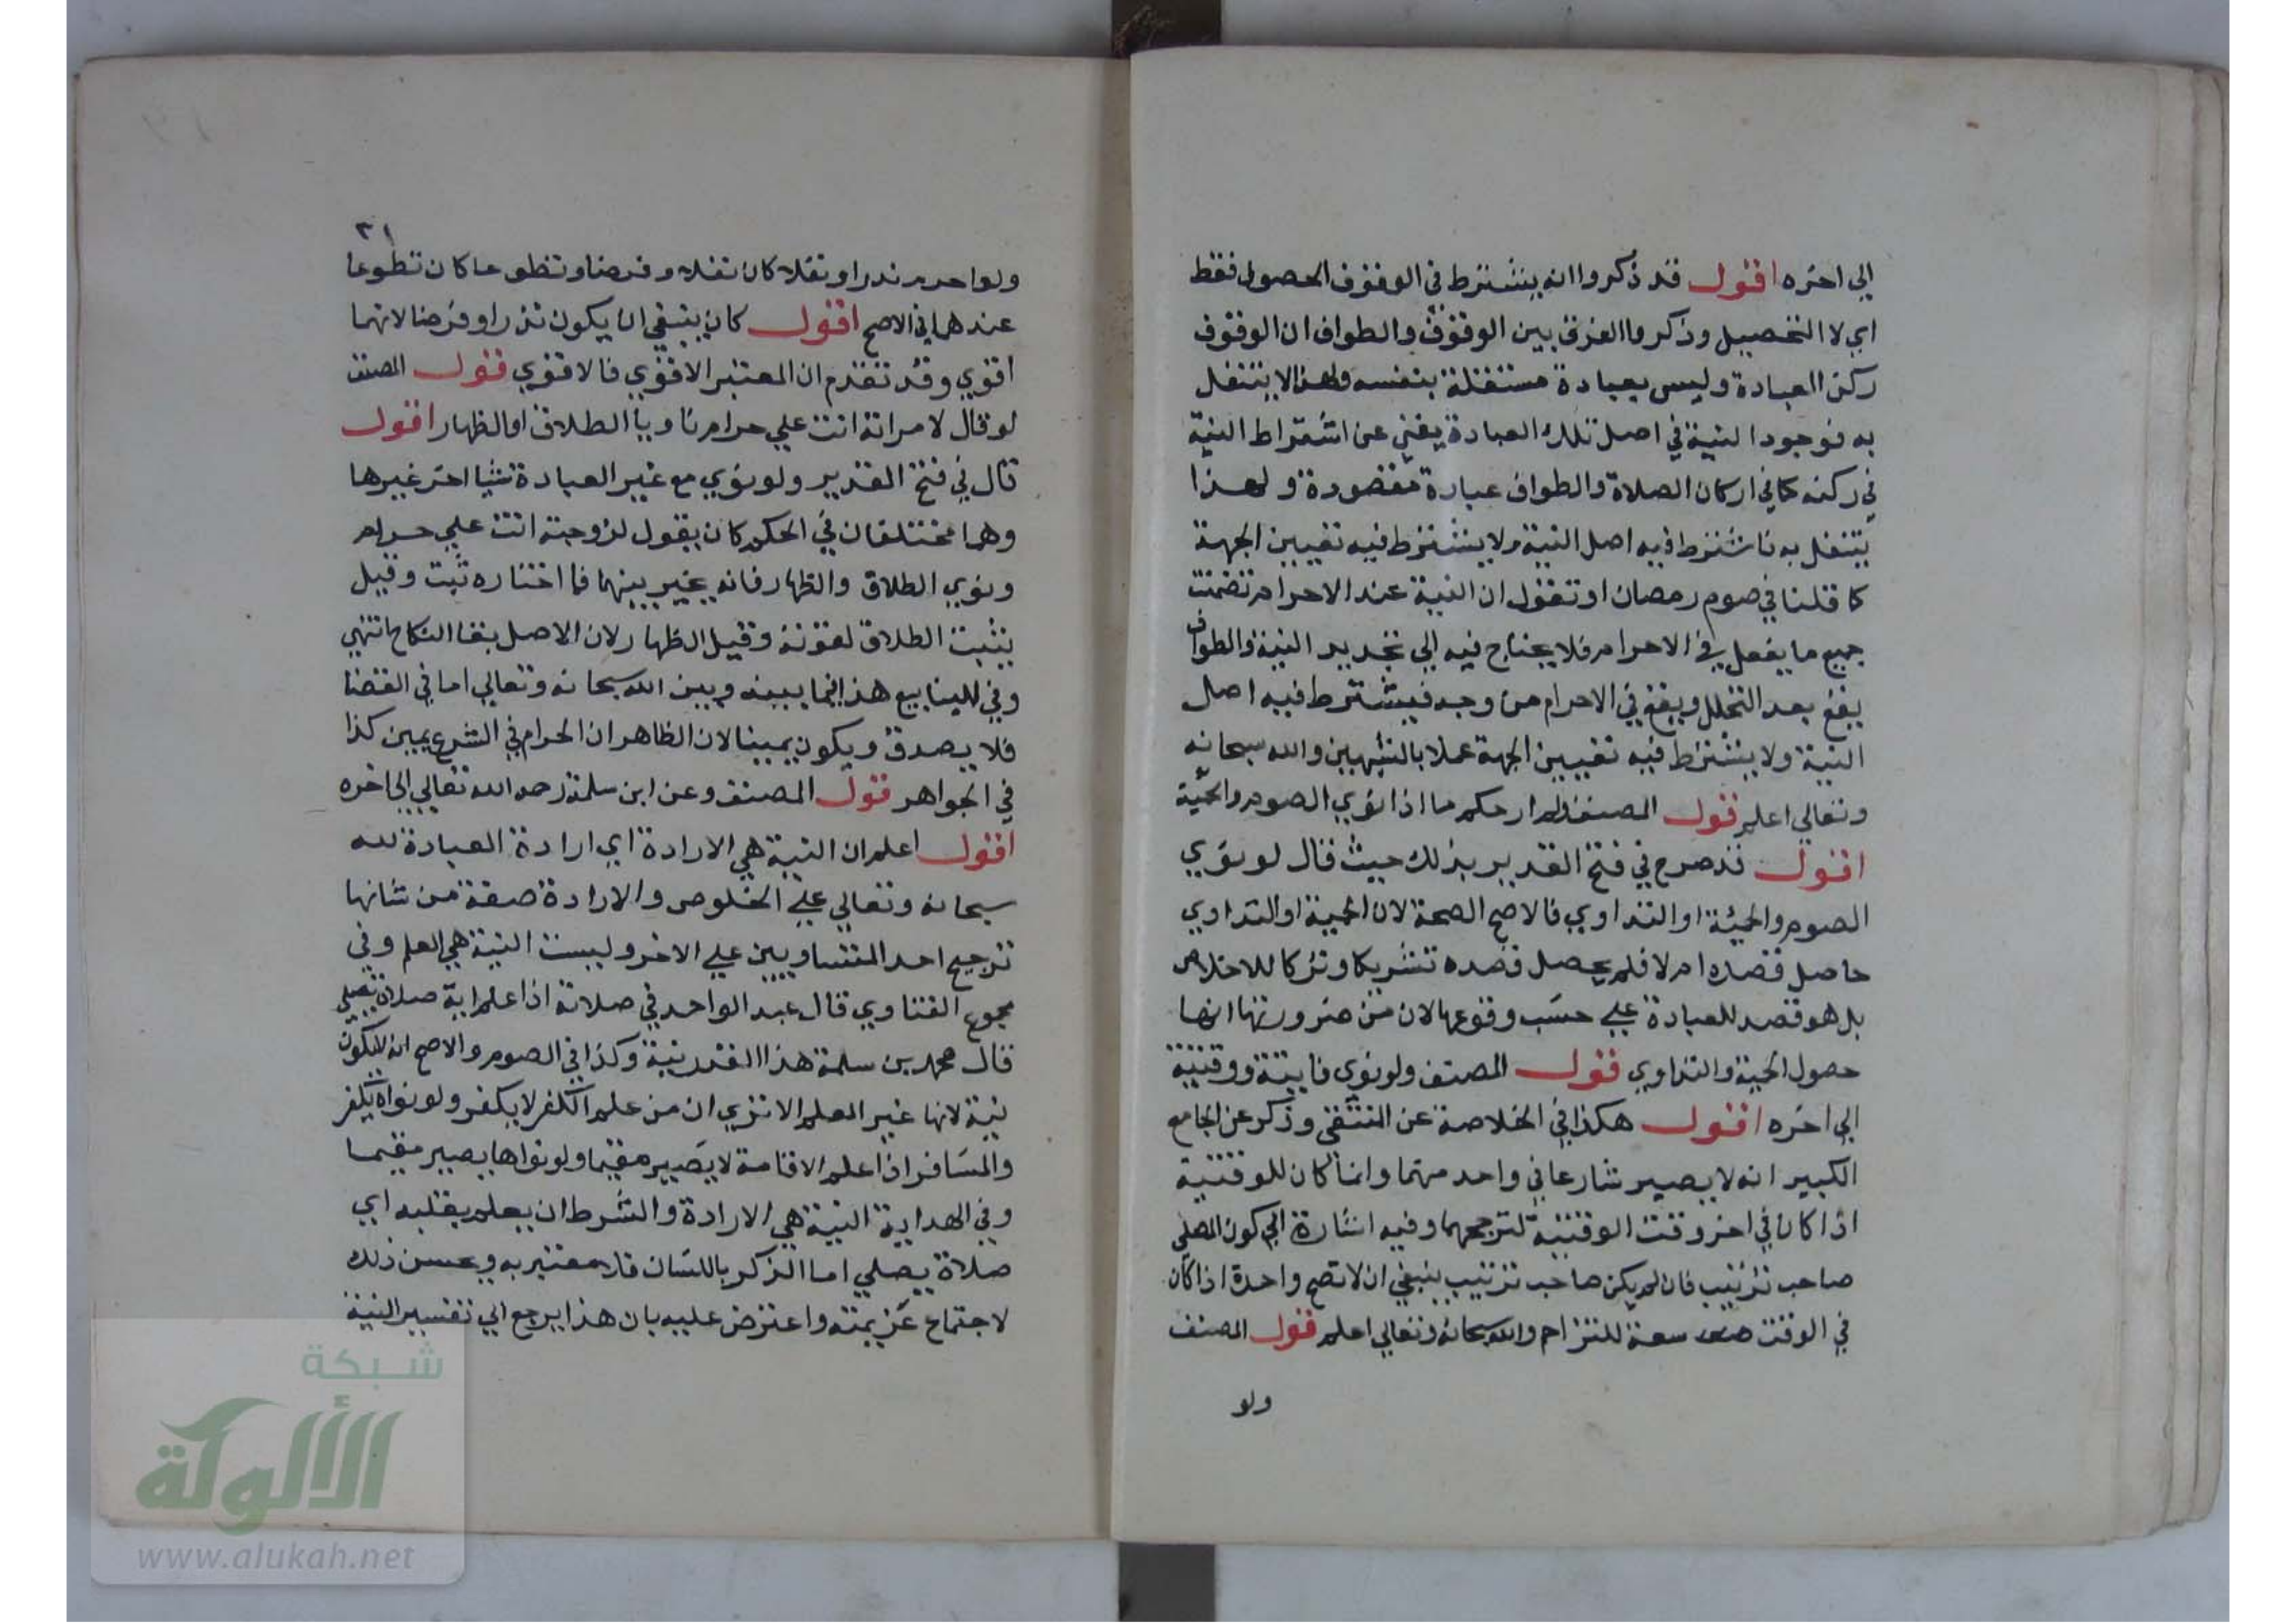 الي اخره اقول قد ذكروا انه يشترط في الوقوف الحصول فقط
اي لا التحصيل وذكروا الفرق بين الوقوف والطواف ان الوقوف
ركن العبادة وليس بعبادة مستقلة بنفسه ولهذا لا يتنفل
به فوجود النية في اصل تلك العبادة يغني عن اشتراط النية
في ركنه كما في اركان الصلاة والطواف عبادة مقصودة ولهذا
يتنفل به فاشترط فيه اصل النية ولا يشترط فيه تعيين الجهة
كما قلنا في صوم رمضان او تقول ان النية عند الاحرام تضمنت
جميع ما يفعل في الاحرام فلا يحتاج فيه الي تجديد النية والطواف
يقع بعد التحلل ويقع في الاحرام من وجه فيشترط فيه اصل
النية ولا يشترط فيه تعيين الجهة عملا بالشبهين والله سبحانه
وتعالي اعلم قول المصنف ولم ار حكم ما اذا نوي الصوم والحمية
اقول قد صرح في فتح القدير بذلك حيث قال لو نوي
الصوم والحمية او التداوي فالاصح الصحة لان الحمية او التداوي
حاصل قصده ام لا فلم يحصل قصده تشريكا وتركا للاخلاص
بل هو قصد للعبادة علي حسب وقوعها لان من ضرورتها انها
حصول الحمية والتداوي قول المصنف ولو نوي فايتة ووقتية
الي اخره اقول هكذا في الخلاصة عن المنتقي وذكر عن الجامع
الكبير انه لا يصير شارعا في واحد منهما وانما كان للوقتية
اذا كان في اخر وقت الوقتية لترجحها وفيه اشارة الي كون المصلي
صاحب ترتيب فان لم يكن صاحب ترتيب ينبغي ان لا تصح واحدة اذا كان
في الوقت سعة للتزاحم والله سبحانه وتعالي اعلم قول المصنف
ولو
٣١
ولو احرم نذرا ونفلا كان نفلا وفرضا وتطوعا كان تطوعا
عندهما في الاصح اقول كان ينبغي ان يكون نذرا وفرضا لانهما
اقوي وقد تقدم ان المعتبر الاقوي فالاقوي قول المصنف
لو قال لامراته انت علي حرام ناويا الطلاق او الظهار اقول
قال في فتح القدير ولو نوي مع غير العبادة شيا اخر غيرها
وهما مختلفان في الحكم كان يقول لزوجته انت علي حرام
ونوي الطلاق والظهار فانه يخير بينهما فما اختاره ثبت وقيل
يثبت الطلاق لقوته وقيل الظهار لان الاصل بقا النكاح انتهي
وفي الينابيع هذا فيما بينه وبين الله سبحانه وتعالي اما في القضا
فلا يصدق ويكون يمينا لان الظاهر ان الحرام في الشرع يمين كذا
في الجواهر قول المصنف وعن ابن سلمة رحمه الله تعالي الي اخره
اقول اعلم ان النية هي الارادة اي ارادة العبادة لله
سبحانه وتعالي علي الخلوص والارادة صفة من شانها
ترجيح احد المتساويين علي الاخر وليست النية هي العلم وفي
مجموع الفتاوي قال عبد الواحد في صلاته اذا علم اية صلاة يصلي
قال محمد بن سلمة هذا القدر نية وكذا في الصوم والاصح انه لا يكون
نية لانها غير العلم الا تري ان من علم الكفر لا يكفر ولو نواه يكفر
والمسافر اذا علم الاقامة لا يصير مقيما ولو نواها يصير مقيما
وفي الهداية النية هي الارادة والشرط ان يعلم بقلبه اي
صلاة يصلي اما الذكر باللسان فلا معتبر به ويحسن ذلك
لاجتماع عزيمته واعترض عليه بان هذا يرجع الي تفسير النية
شبكة
الألوكة
www.alukah.net